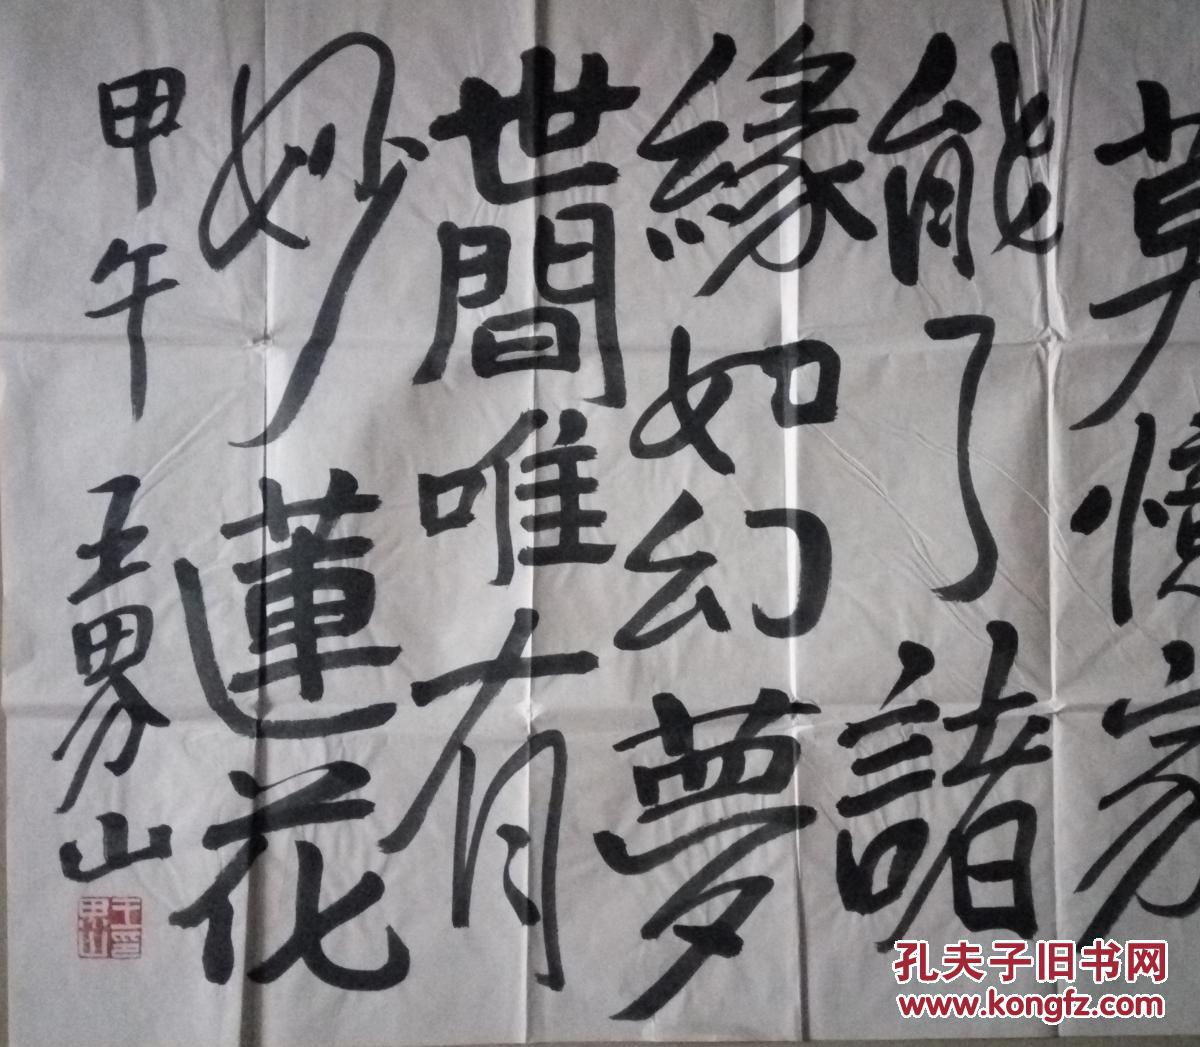 莫憶家
能了諸
緣如幻夢
世間唯有
妙蓮花
甲午 王界山
王界山印
孔夫子旧书网
www.kongfz.com